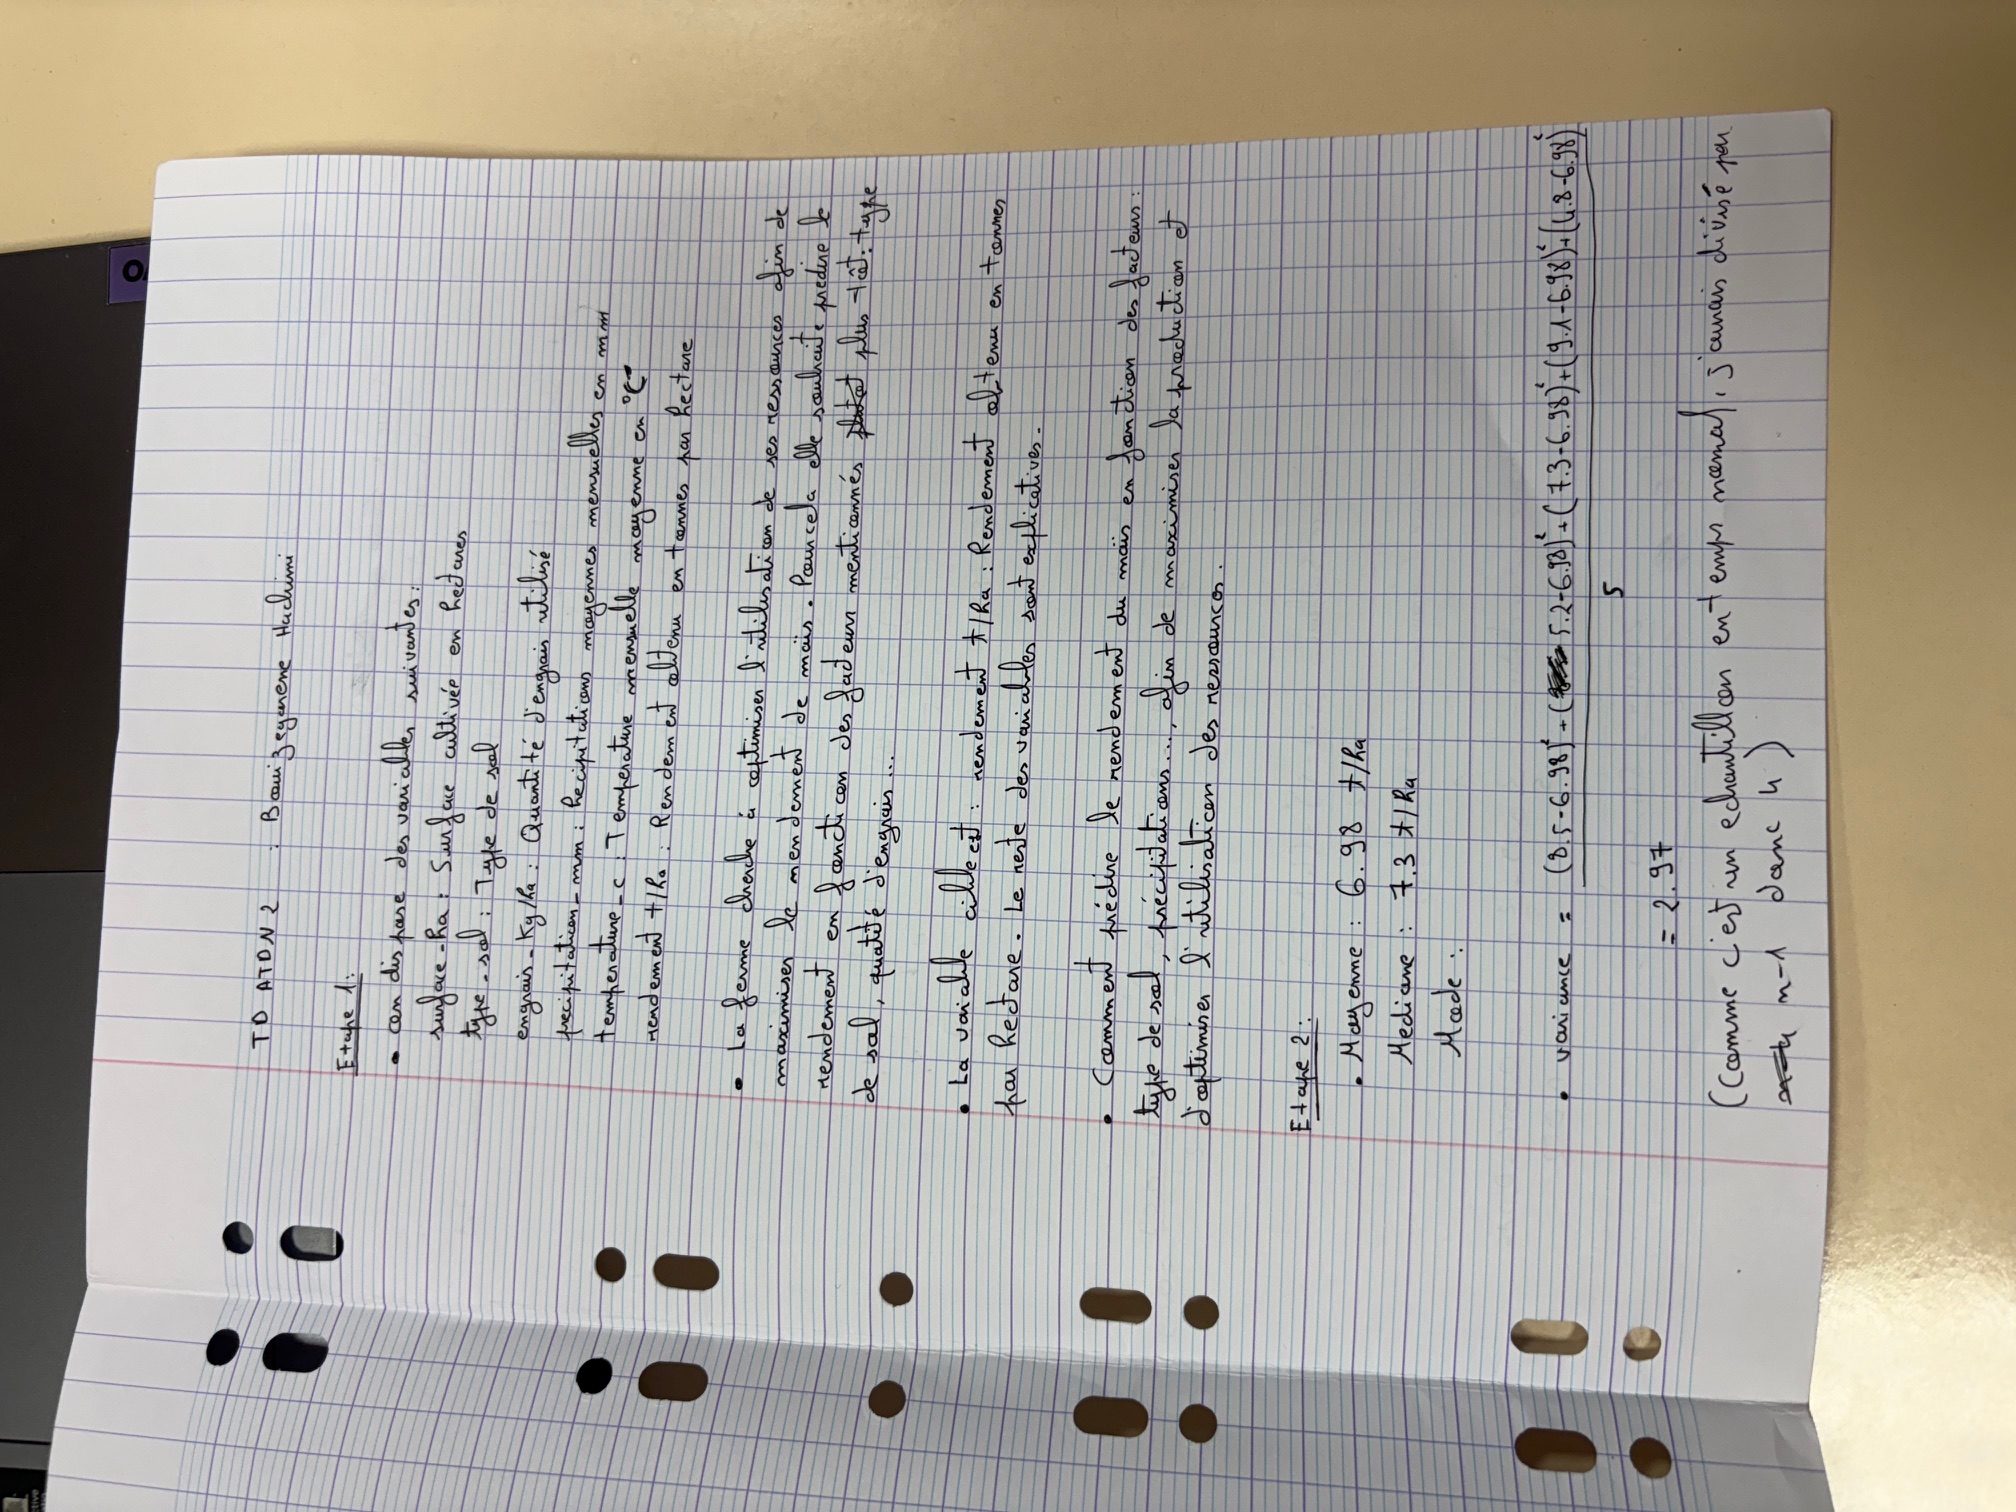 TD ATDN 2 : Bouizegarene Hachimi
Etape 1:
• on dispose des variables suivantes:
surface-ha : Surface cultivée en hectares
type-sol : Type de sol
engrais-Kg/ha : Quantité d'engrais utilisé
precipitation-mm : Precipitations moyennes mensuelles en mm
temperature-c : Temperature mensuelle moyenne en °C
rendement t/ha : Rendement obtenu en tonnes par hectare
• La ferme cherche à optimiser l'utilisation de ses ressources afin de
maximiser le rendement de maïs. Pour cela elle souhaite prédire le
rendement en fonction des facteurs mentionnés plus tôt: type
de sol, quatité d'engrais...
• La variable cible est : rendement t/ha : Rendement obtenu en tonnes
par hectare. Le reste des variables sont explicatives.
• Comment prédire le rendement du maïs en fonction des facteurs:
type de sol, précipitations..., afin de maximiser la production et
d'optimiser l'utilisation des ressources.
Etape 2:
• Moyenne : 6.98 t/ha
Mediane : 7.3 t/ha
Mode :
• variance = (8.5-6.98)²+(5.2-6.98)²+(7.3-6.98)²+(9.1-6.98)²+(4.8-6.98)²
5
= 2.97
(Comme c'est un echantillon en temps normal, j'aurais divisé par
n-1 donc 4)